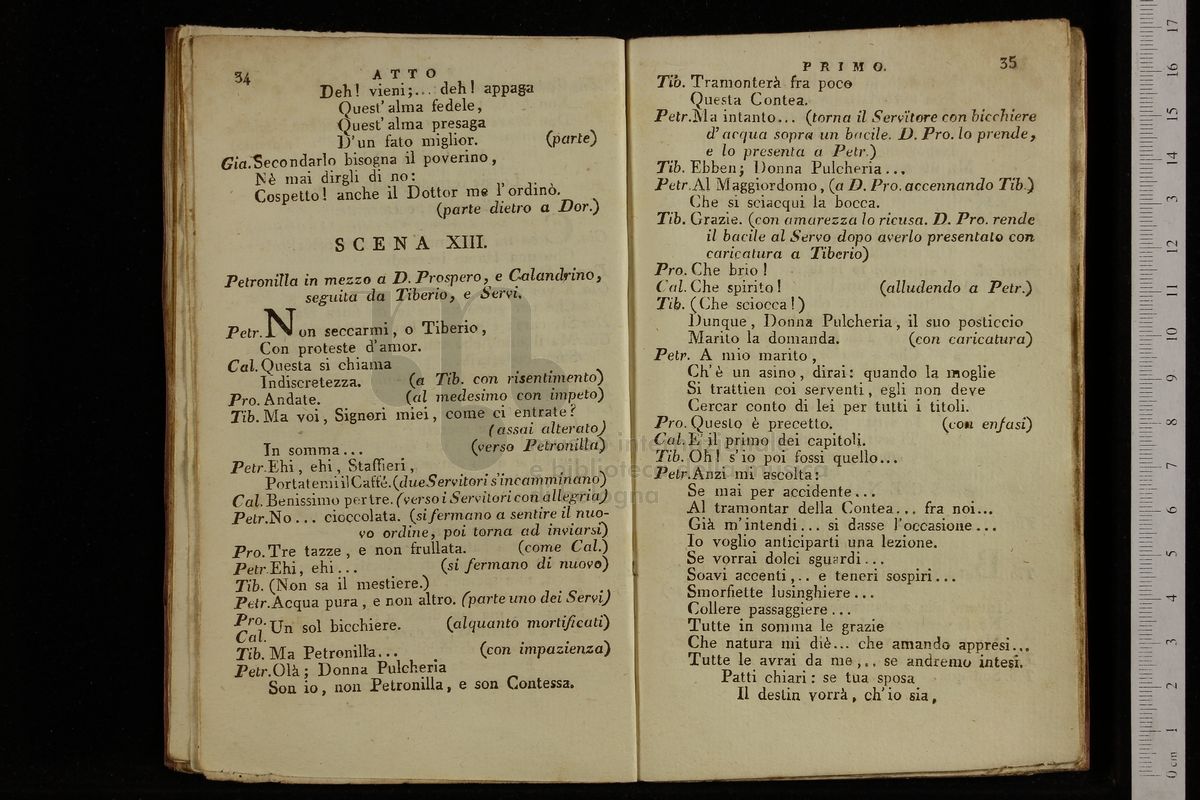 34
ATTO
Deh! vieni;... deh! appaga
Quest' alma fedele,
Quest' alma presaga
D'un fato miglior. (parte)
Gia. Secondarlo bisogna il poverino,
Nè mai dirgli di no:
Cospetto! anche il Dottor me l'ordinò.
(parte dietro a Dor.)
SCENA XIII.
Petronilla in mezzo a D. Prospero, e Calandrino,
seguita da Tiberio, e Servi.
Petr. Non seccarmi, o Tiberio,
Con proteste d'amor.
Cal. Questa si chiama
Indiscretezza. (a Tib. con risentimento)
Pro. Andate. (al medesimo con impeto)
Tib. Ma voi, Signori miei, come ci entrate?
(assai alterato)
In somma... (verso Petronilla)
Petr. Ehi, ehi, Staffieri,
Portatemi il Caffé. (due Servitori s'incamminano)
Cal. Benissimo per tre. (verso i Servitori con allegria)
Petr. No... cioccolata. (si fermano a sentire il nuo-
vo ordine, poi torna ad inviarsi)
Pro. Tre tazze, e non frullata. (come Cal.)
Petr. Ehi, ehi... (si fermano di nuovo)
Tib. (Non sa il mestiere.)
Petr. Acqua pura, e non altro. (parte uno dei Servi)
Pro.
Cal. Un sol bicchiere. (alquanto mortificati)
Tib. Ma Petronilla... (con impazienza)
Petr. Olà; Donna Pulcheria
Son io, non Petronilla, e son Contessa.
PRIMO.
35
Tib. Tramonterà fra poco
Questa Contea.
Petr. Ma intanto... (torna il Servitore con bicchiere
d'acqua sopra un bacile. D. Pro. lo prende,
e lo presenta a Petr.)
Tib. Ebben; Donna Pulcheria...
Petr. Al Maggiordomo, (a D. Pro. accennando Tib.)
Che si sciacqui la bocca.
Tib. Grazie. (con amarezza lo ricusa. D. Pro. rende
il bacile al Servo dopo averlo presentato con
caricatura a Tiberio)
Pro. Che brio!
Cal. Che spirito! (alludendo a Petr.)
Tib. (Che sciocca!)
Dunque, Donna Pulcheria, il suo posticcio
Marito la domanda. (con caricatura)
Petr. A mio marito,
Ch'è un asino, dirai: quando la moglie
Si trattien coi serventi, egli non deve
Cercar conto di lei per tutti i titoli.
Pro. Questo è precetto. (con enfasi)
Cal. E' il primo dei capitoli.
Tib. Oh! s'io poi fossi quello...
Petr. Anzi mi ascolta:
Se mai per accidente...
Al tramontar della Contea... fra noi...
Già m'intendi... si dasse l'occasione...
Io voglio anticiparti una lezione.
Se vorrai dolci sguardi...
Soavi accenti,.. e teneri sospiri...
Smorfiette lusinghiere...
Collere passaggiere...
Tutte in somma le grazie
Che natura mi diè... che amando appresi...
Tutte le avrai da me,.. se andremo intesi.
Patti chiari: se tua sposa
Il destin vorrà, ch'io sia,
0 cm 1 2 3 4 5 6 7 8 9 10 11 12 13 14 15 16 17